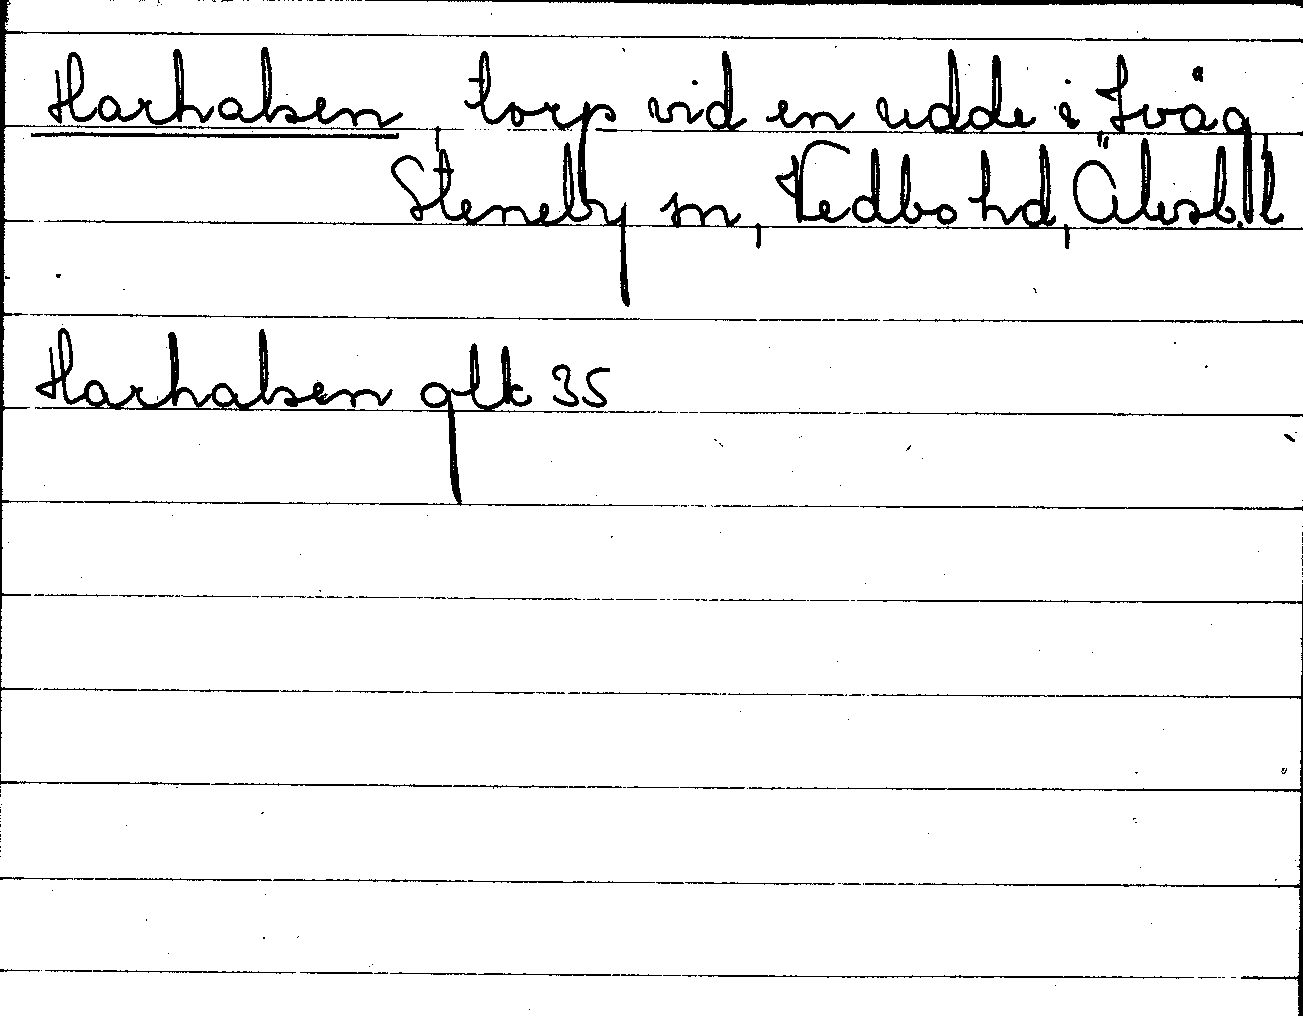 Harhalsen, torp vid en udde i Ivåg,
Steneby sn, Vedbo hd, Älvsb. l
Harhalsen glk 35